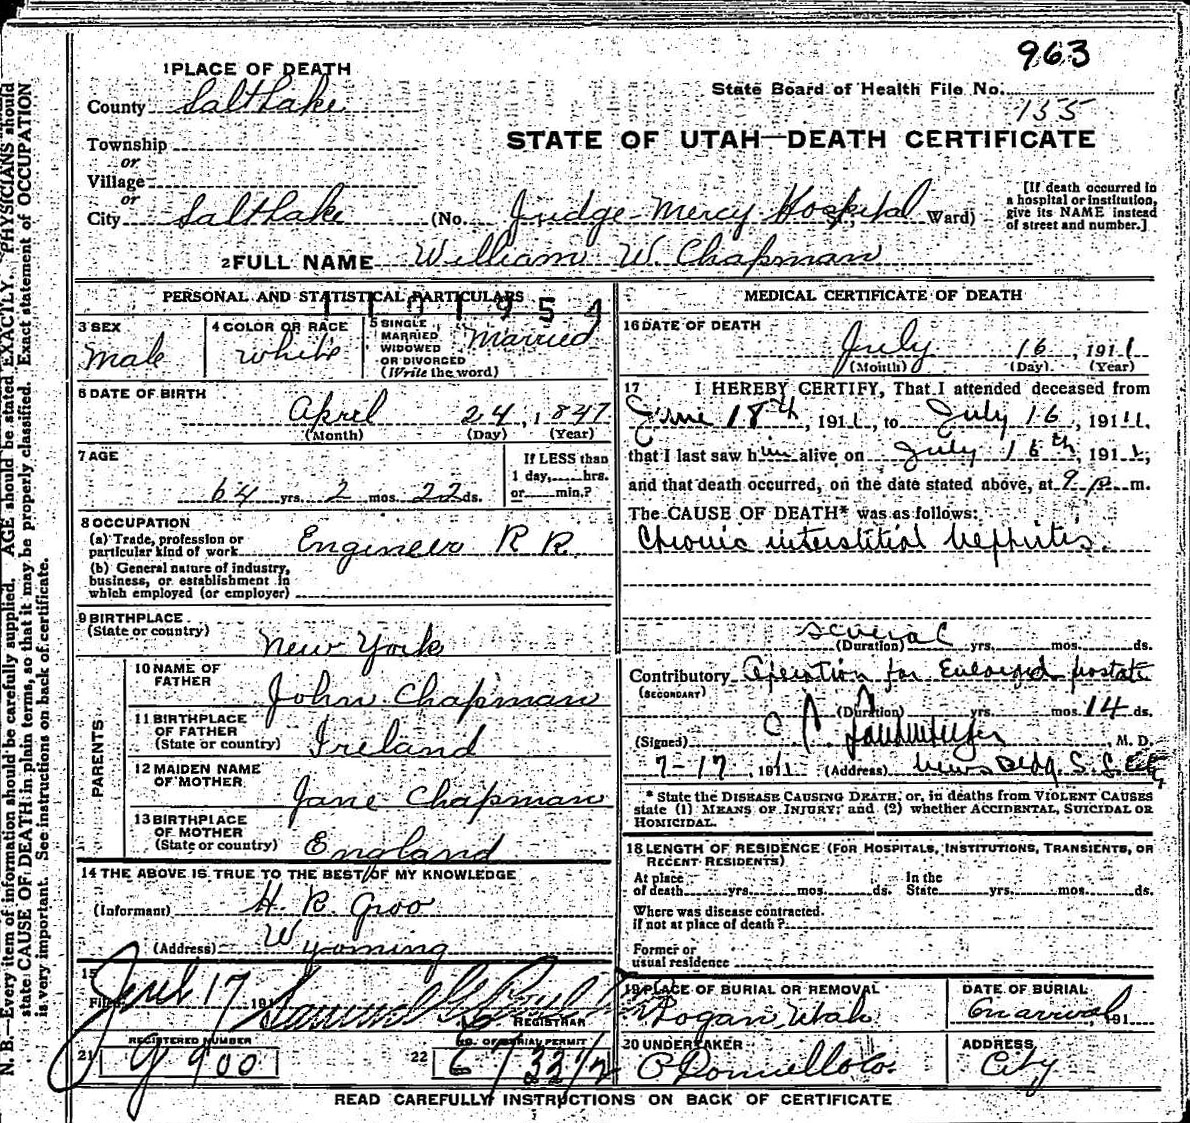 963
1 PLACE OF DEATH
State Board of Health File No.
155
County Salt Lake
STATE OF UTAH—DEATH CERTIFICATE
Township
or
Village
or
City Salt Lake (No. Judge Mercy Hospital Ward)
[If death occurred in a hospital or institution, give its NAME instead of street and number.]
2 FULL NAME William W. Chapman
PERSONAL AND STATISTICAL PARTICULARS
3 SEX
Male
4 COLOR OR RACE
White
5 SINGLE MARRIED WIDOWED OR DIVORCED (Write the word)
Married
6 DATE OF BIRTH
April 24, 1847
(Month) (Day) (Year)
7 AGE
If LESS than
1 day,......hrs.
or......min.?
64 yrs. 2 mos. 22 ds.
8 OCCUPATION
(a) Trade, profession or
particular kind of work Engineer R R
(b) General nature of industry,
business, or establishment in
which employed (or employer)
9 BIRTHPLACE
(State or country)
New York
PARENTS
10 NAME OF FATHER
John Chapman
11 BIRTHPLACE OF FATHER (State or country)
Ireland
12 MAIDEN NAME OF MOTHER
Jane Chapman
13 BIRTHPLACE OF MOTHER (State or country)
England
14 THE ABOVE IS TRUE TO THE BEST OF MY KNOWLEDGE
(Informant) H. R. Groo
(Address) Wyoming
15
Filed July 17 191
REGISTRAR
21 REGISTERED NUMBER
22 NO. OF BURIAL PERMIT
MEDICAL CERTIFICATE OF DEATH
16 DATE OF DEATH
July 16, 1911
(Month) (Day) (Year)
17 I HEREBY CERTIFY, That I attended deceased from
June 18th, 1911, to July 16, 1911,
that I last saw him alive on July 16th, 1911,
and that death occurred, on the date stated above, at 9 p m.
The CAUSE OF DEATH* was as follows:
Chronic interstitial nephritis.
several
(Duration) yrs. mos. ds.
Contributory Operation for Enlarged prostate
(SECONDARY)
(Duration) yrs. mos. 14 ds.
(Signed) M. D.
7-17, 1911 (Address) News Bldg. S. L. City
* State the DISEASE CAUSING DEATH; or, in deaths from VIOLENT CAUSES
state (1) MEANS OF INJURY; and (2) whether ACCIDENTAL, SUICIDAL OR
HOMICIDAL.
18 LENGTH OF RESIDENCE (FOR HOSPITALS, INSTITUTIONS, TRANSIENTS, OR
RECENT RESIDENTS)
At place In the
of death yrs. mos. ds. State yrs. mos. ds.
Where was disease contracted,
if not at place of death?
Former or
usual residence
19 PLACE OF BURIAL OR REMOVAL
Logan, Utah
DATE OF BURIAL
On arrival, 191
20 UNDERTAKER
ADDRESS
City
READ CAREFULLY INSTRUCTIONS ON BACK OF CERTIFICATE
N. B.—Every item of information should be carefully supplied. AGE should be stated EXACTLY. PHYSICIANS should
state CAUSE OF DEATH in plain terms, so that it may be properly classified. Exact statement of OCCUPATION
is very important. See instructions on back of certificate.